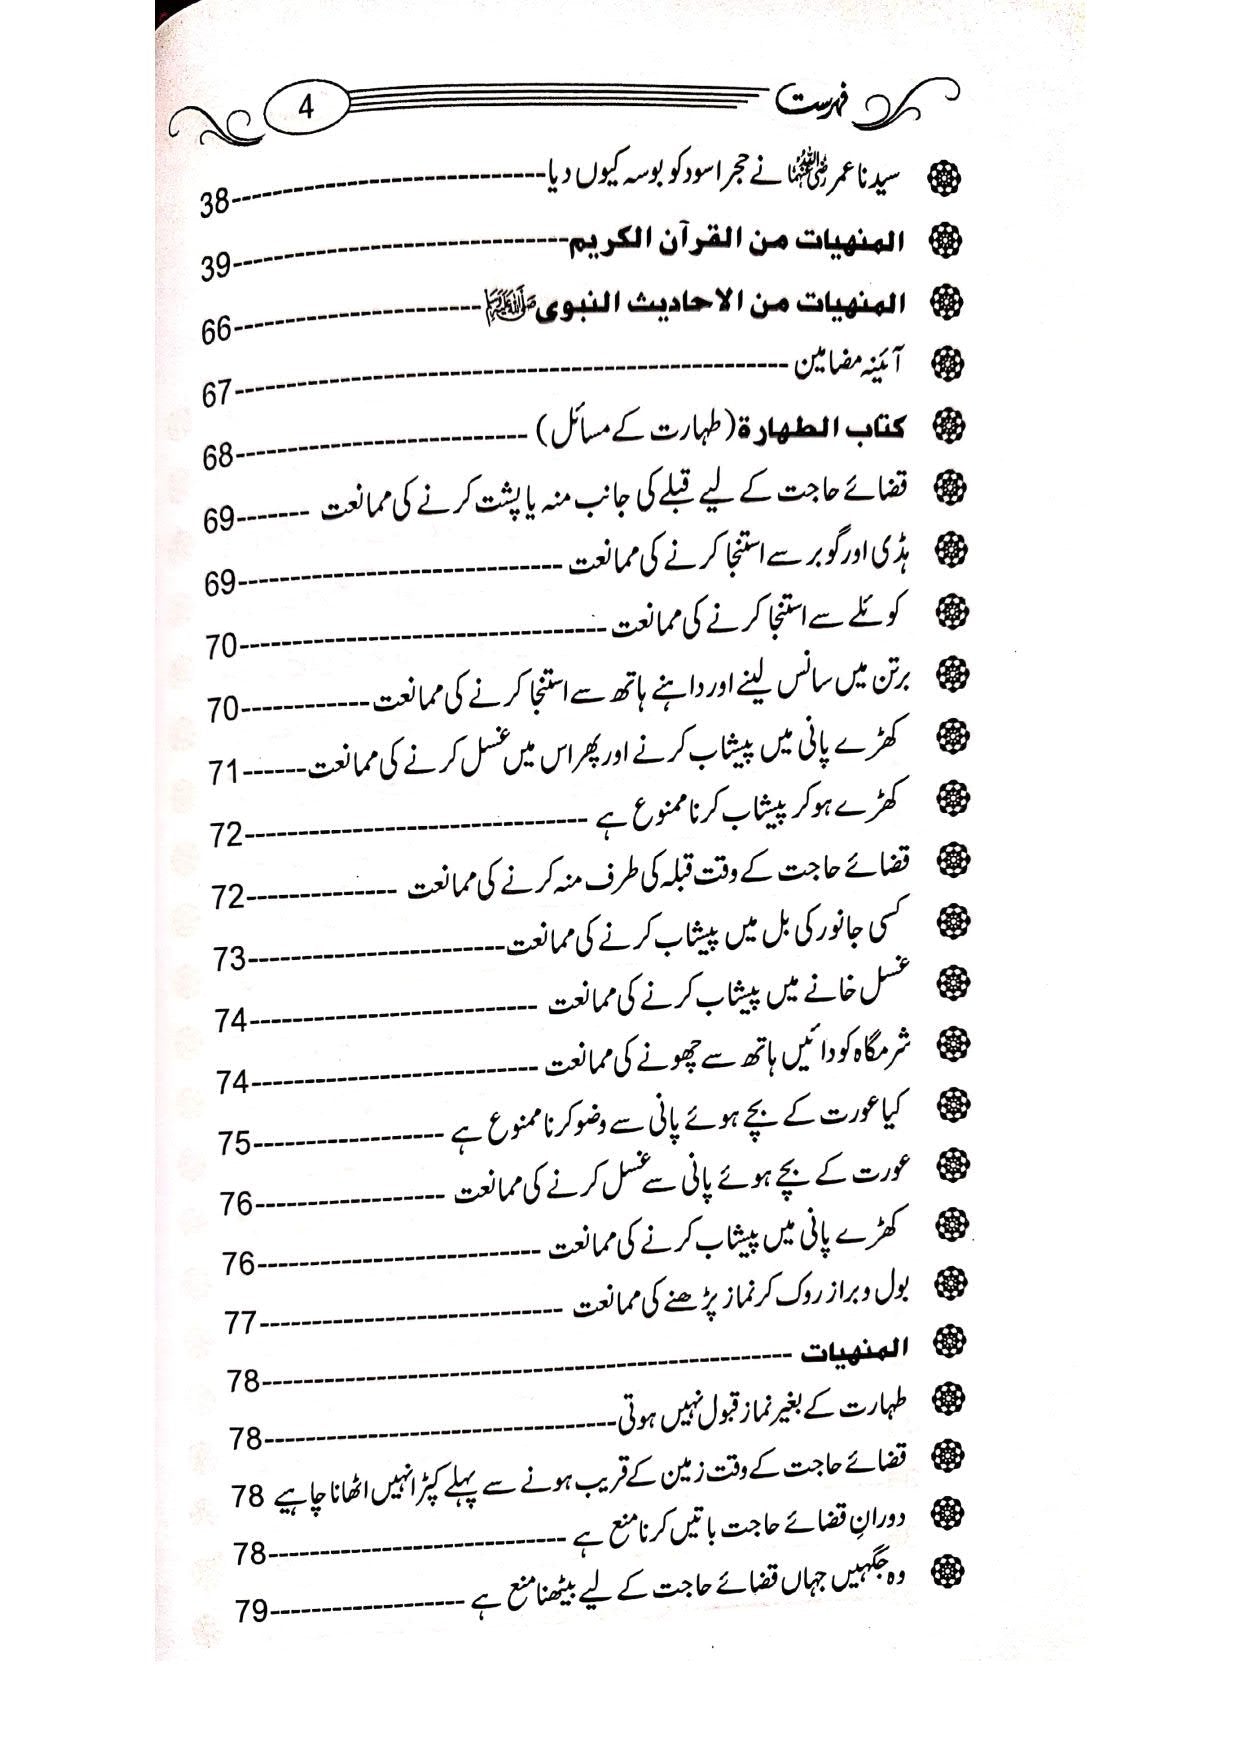 فہرست 4
سیدنا عمر رضی اللہ عنہما نے حجر اسود کو بوسہ کیوں دیا 38
المنھیات من القرآن الکریم 39
المنھیات من الاحادیث النبوی ﷺ 66
آئینہ مضامین 67
کتاب الطھارۃ (طہارت کے مسائل) 68
قضائے حاجت کے لیے قبلے کی جانب منہ یا پشت کرنے کی ممانعت 69
ہڈی اور گوبر سے استنجا کرنے کی ممانعت 69
کوئلے سے استنجا کرنے کی ممانعت 70
برتن میں سانس لینے اور داہنے ہاتھ سے استنجا کرنے کی ممانعت 70
کھڑے پانی میں پیشاب کرنے اور پھر اس میں غسل کرنے کی ممانعت 71
کھڑے ہو کر پیشاب کرنا ممنوع ہے 72
قضائے حاجت کے وقت قبلہ کی طرف منہ کرنے کی ممانعت 72
کسی جانور کی بل میں پیشاب کرنے کی ممانعت 73
غسل خانے میں پیشاب کرنے کی ممانعت 74
شرمگاہ کو دائیں ہاتھ سے چھونے کی ممانعت 74
کیا عورت کے بچے ہوئے پانی سے وضو کرنا ممنوع ہے 75
عورت کے بچے ہوئے پانی سے غسل کرنے کی ممانعت 76
کھڑے پانی میں پیشاب کرنے کی ممانعت 76
بول و براز روک کر نماز پڑھنے کی ممانعت 77
المنھیات 78
طہارت کے بغیر نماز قبول نہیں ہوتی 78
قضائے حاجت کے وقت زمین کے قریب ہونے سے پہلے کپڑا نہیں اٹھانا چاہیے 78
دورانِ قضائے حاجت باتیں کرنا منع ہے 78
وہ جگہیں جہاں قضائے حاجت کے لیے بیٹھنا منع ہے 79